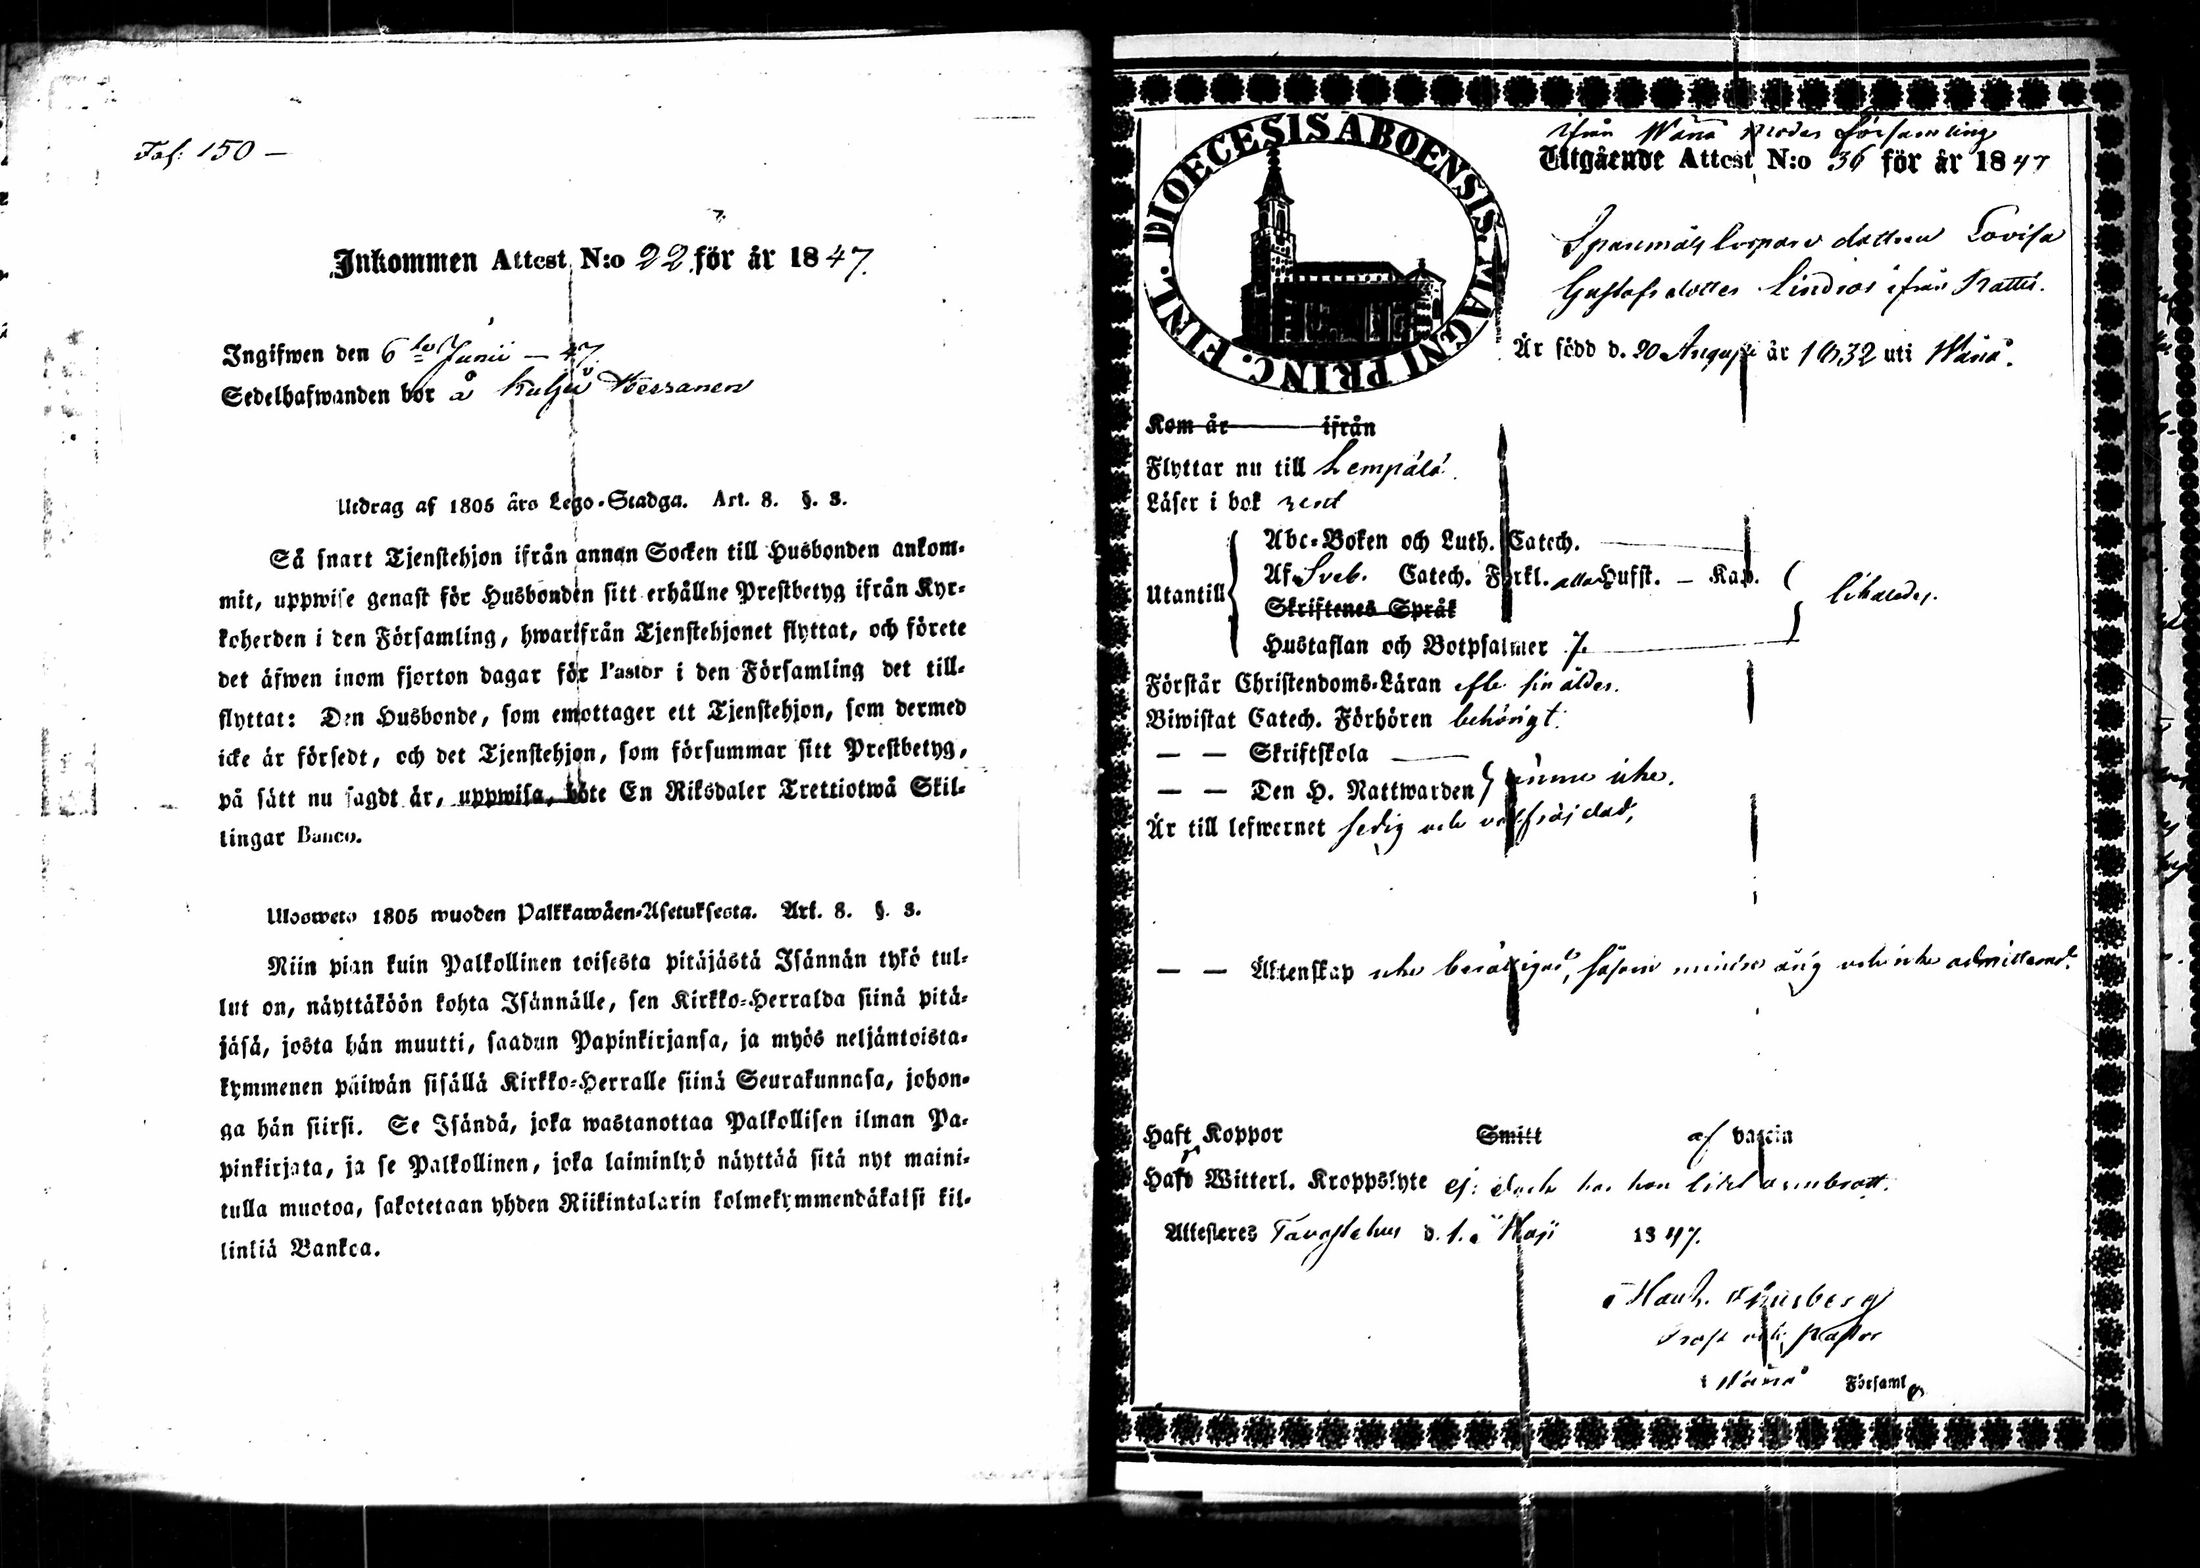 Fol: 150 —
Inkommen Attest N:o 22 för år 1847.
Ingifwen den 6te Junii — 47.
Sedelhafwanden bor å Kulju
Utdrag af 1805 års Lego-Stadga. Art. 8. §. 3.
Så snart Tjenstehjon ifrån annan Socken till Husbonden ankom-
mit, uppwise genast för Husbonden sitt erhållne Prestbetyg ifrån Kyr-
koherden i den Församling, hwarifrån Tjenstehjonet flyttat, och förete
det äfwen inom fjorton dagar för Pastor i den Församling det till-
flyttat: Den Husbonde, som emottager ett Tjenstehjon, som dermed
icke är försedt, och det Tjenstehjon, som försummar sitt Prestbetyg,
på sätt nu sagdt är, uppwisa, böte En Riksdaler Trettiotwå Skil-
lingar Banco.
Ulosweto 1805 wuoden Palkkawäen-Asetuksesta. Art. 8. §. 3.
Niin pian kuin Palkollinen toisesta pitäjästä Isännän tykö tul-
lut on, näyttäköön kohta Isännälle, sen Kirkko-Herralda siinä pitä-
jäsä, josta hän muutti, saadun Papinkirjansa, ja myös neljäntoista-
kymmenen päiwän sisällä Kirkko-Herralle siinä Seurakunnasa, johon-
ga hän siirsi. Se Isändä, joka wastanottaa Palkollisen ilman Pa-
pinkirjata, ja se Palkollinen, joka laiminlyö näyttää sitä nyt maini-
tulla muotoa, sakotetaan yhden Riikintalarin kolmekymmendäkaksi kil-
linkiä Bankca.
DIOECESIS ABOENSIS. MAGNI PRINC. FINL.
ifrån Wånå Moder Församling
Utgående Attest N:o 36 för år 1847
dottren Lovisa
Gustafsdotter Lindroos ifrån Kattis.
Är född d. 20 Augusti år 1832 uti Wånå.
Kom år ifrån
Flyttar nu till Lempälä.
Läser i bok rent
Utantill
Abc-Boken och Luth. Catech.
Af Sveb. Catech. Förkl. alla Hufst. — Kap.
Skriftenes Språk
Hustaflan och Botpsalmer 7.
likaledes.
Förstår Christendoms-Läran efter sin ålder.
Biwistat Catech. Förhören behörigt.
— — Skriftskola
— — Den H. Nattwarden ännu icke.
Är till lefwernet sedig och välfräjdad,
— — Äktenskap icke berättigad, såsom minderårig och icke admitterad.
Haft Koppor Smitt af vaccin
Hafv Witterl. Kroppslyte ej: dock har hon lidit armbrott.
Attesteres Tavastehus d. 1. Maji 1847.
Prost och Pastor
i Wånå Församlg